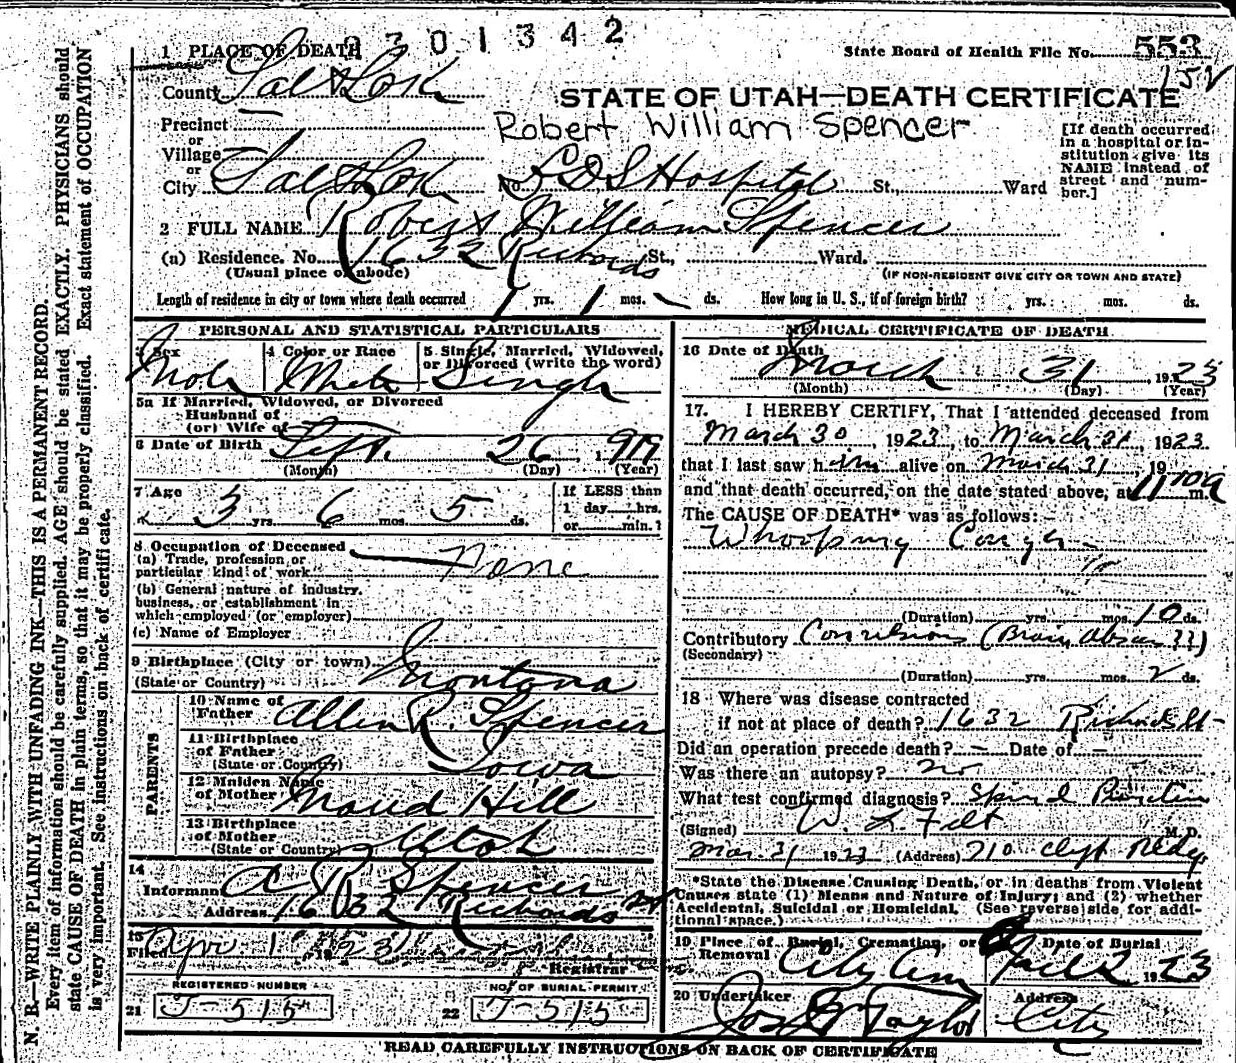 2301342
State Board of Health File No. 553
152
1 PLACE OF DEATH
County Salt Lake
STATE OF UTAH—DEATH CERTIFICATE
Precinct
Robert William Spencer
or
Village
or
City Salt Lake No. LDS Hospital St., Ward
[If death occurred
in a hospital or in-
stitution give its
NAME instead of
street and num-
ber.]
2 FULL NAME Robert William Spencer
(a) Residence. No. 1632 Richards St., Ward.
(Usual place of abode) (IF NON-RESIDENT GIVE CITY OR TOWN AND STATE)
Length of residence in city or town where death occurred 1 yrs. 1 mos. — ds. How long in U. S., if of foreign birth? yrs. mos. ds.
PERSONAL AND STATISTICAL PARTICULARS
3 Sex 4 Color or Race 5 Single, Married, Widowed,
or Divorced (write the word)
Male White Single
5a If Married, Widowed, or Divorced
Husband of
(or) Wife of
6 Date of Birth Sept. 26, 1919
(Month) (Day) (Year)
7 Age If LESS than
3 yrs. 6 mos. 5 ds. 1 day hrs.
or min.?
8 Occupation of Deceased
(a) Trade, profession or
particular kind of work None
(b) General nature of industry,
business, or establishment in
which employed (or employer)
(c) Name of Employer
9 Birthplace (City or town)
(State or Country) Montana
PARENTS
10 Name of
Father Allen R. Spencer
11 Birthplace
of Father
(State or Country) Iowa
12 Maiden Name
of Mother Maud Hill
13 Birthplace
of Mother
(State or Country) Utah
14
Informant A R Spencer
Address 1632 Richards St
15
Filed Apr 1 1923
Registrar
REGISTERED NUMBER NO. OF BURIAL PERMIT
21 J-515 22 J-515
MEDICAL CERTIFICATE OF DEATH
16 Date of Death
March 31, 1923
(Month) (Day) (Year)
17. I HEREBY CERTIFY, That I attended deceased from
March 30, 1923, to March 31, 1923
that I last saw him alive on March 31, 19
and that death occurred, on the date stated above, at m.
The CAUSE OF DEATH* was as follows:
Whooping Cough
(Duration) yrs. mos. 10 ds.
Contributory Convulsions (Brain Abscess ??)
(Secondary)
(Duration) yrs. mos. 2 ds.
18 Where was disease contracted
if not at place of death? 1632 Richards St
Did an operation precede death? — Date of —
Was there an autopsy? no
What test confirmed diagnosis? Spinal Puncture
(Signed) W. L. Felt M.D.
Mar. 31 1923 (Address) 710 Clift Bldg.
*State the Disease Causing Death, or in deaths from Violent
Causes state (1) Means and Nature of Injury; and (2) whether
Accidental, Suicidal or Homicidal. (See reverse side for addi-
tional space.)
19 Place of Burial, Cremation, or Date of Burial
Removal City Cem April 2 1923
20 Undertaker Address
Jos Taylor City
READ CAREFULLY INSTRUCTIONS ON BACK OF CERTIFICATE
N. B.—WRITE PLAINLY WITH UNFADING INK—THIS IS A PERMANENT RECORD.
Every item of information should be carefully supplied. AGE should be stated EXACTLY. PHYSICIANS should
state CAUSE OF DEATH in plain terms, so that it may be properly classified. Exact statement of OCCUPATION
is very important. See instructions on back of certificate.